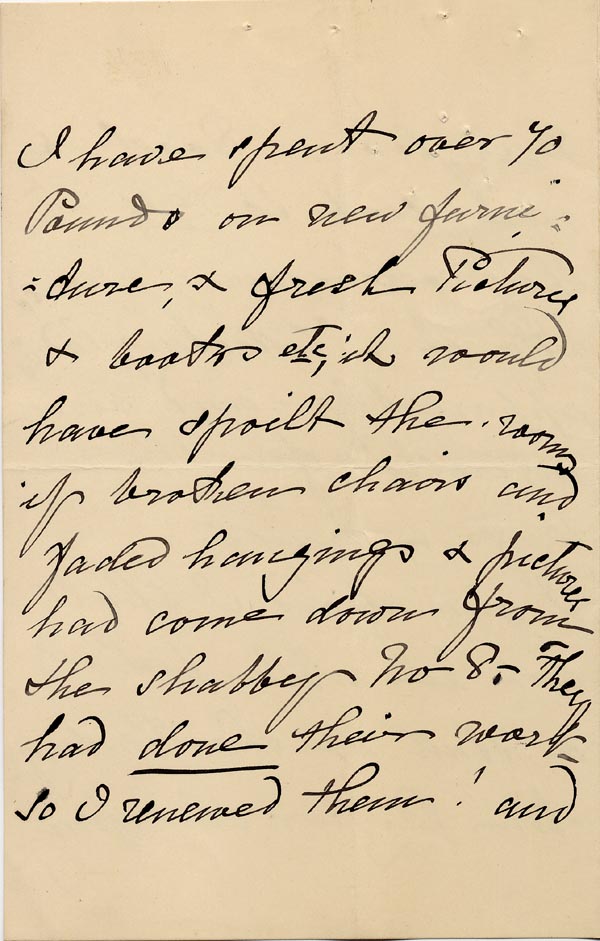 I have spent over 70
Pounds on new furni=
=ture, & fresh Pictures
& books etc; it would
have spoilt the rooms
if broken chairs and
faded hangings & pictures
had come down from
the shabby No 8. They
had done their work
so I renewed them! and